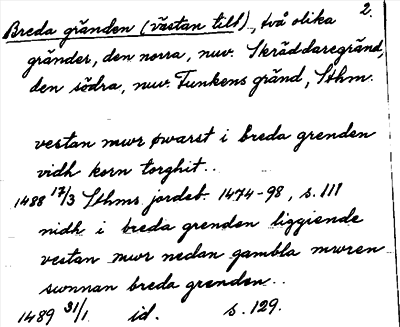 2.
Breda gränden (västan till), två olika
gränder, den norra, nuv. Skräddaregränd,
den södra, nuv. Funkens gränd, Sthm.
vestan mwr øwarst i breda grenden
vidh korn torghit..
1488 17/3 Sthms jordeb. 1474-98, s. 111
nidh i breda grenden liggiende
vestan mwr nedan gambla mwren
swnnan breda grenden..
1489 31/1. id. s. 129.